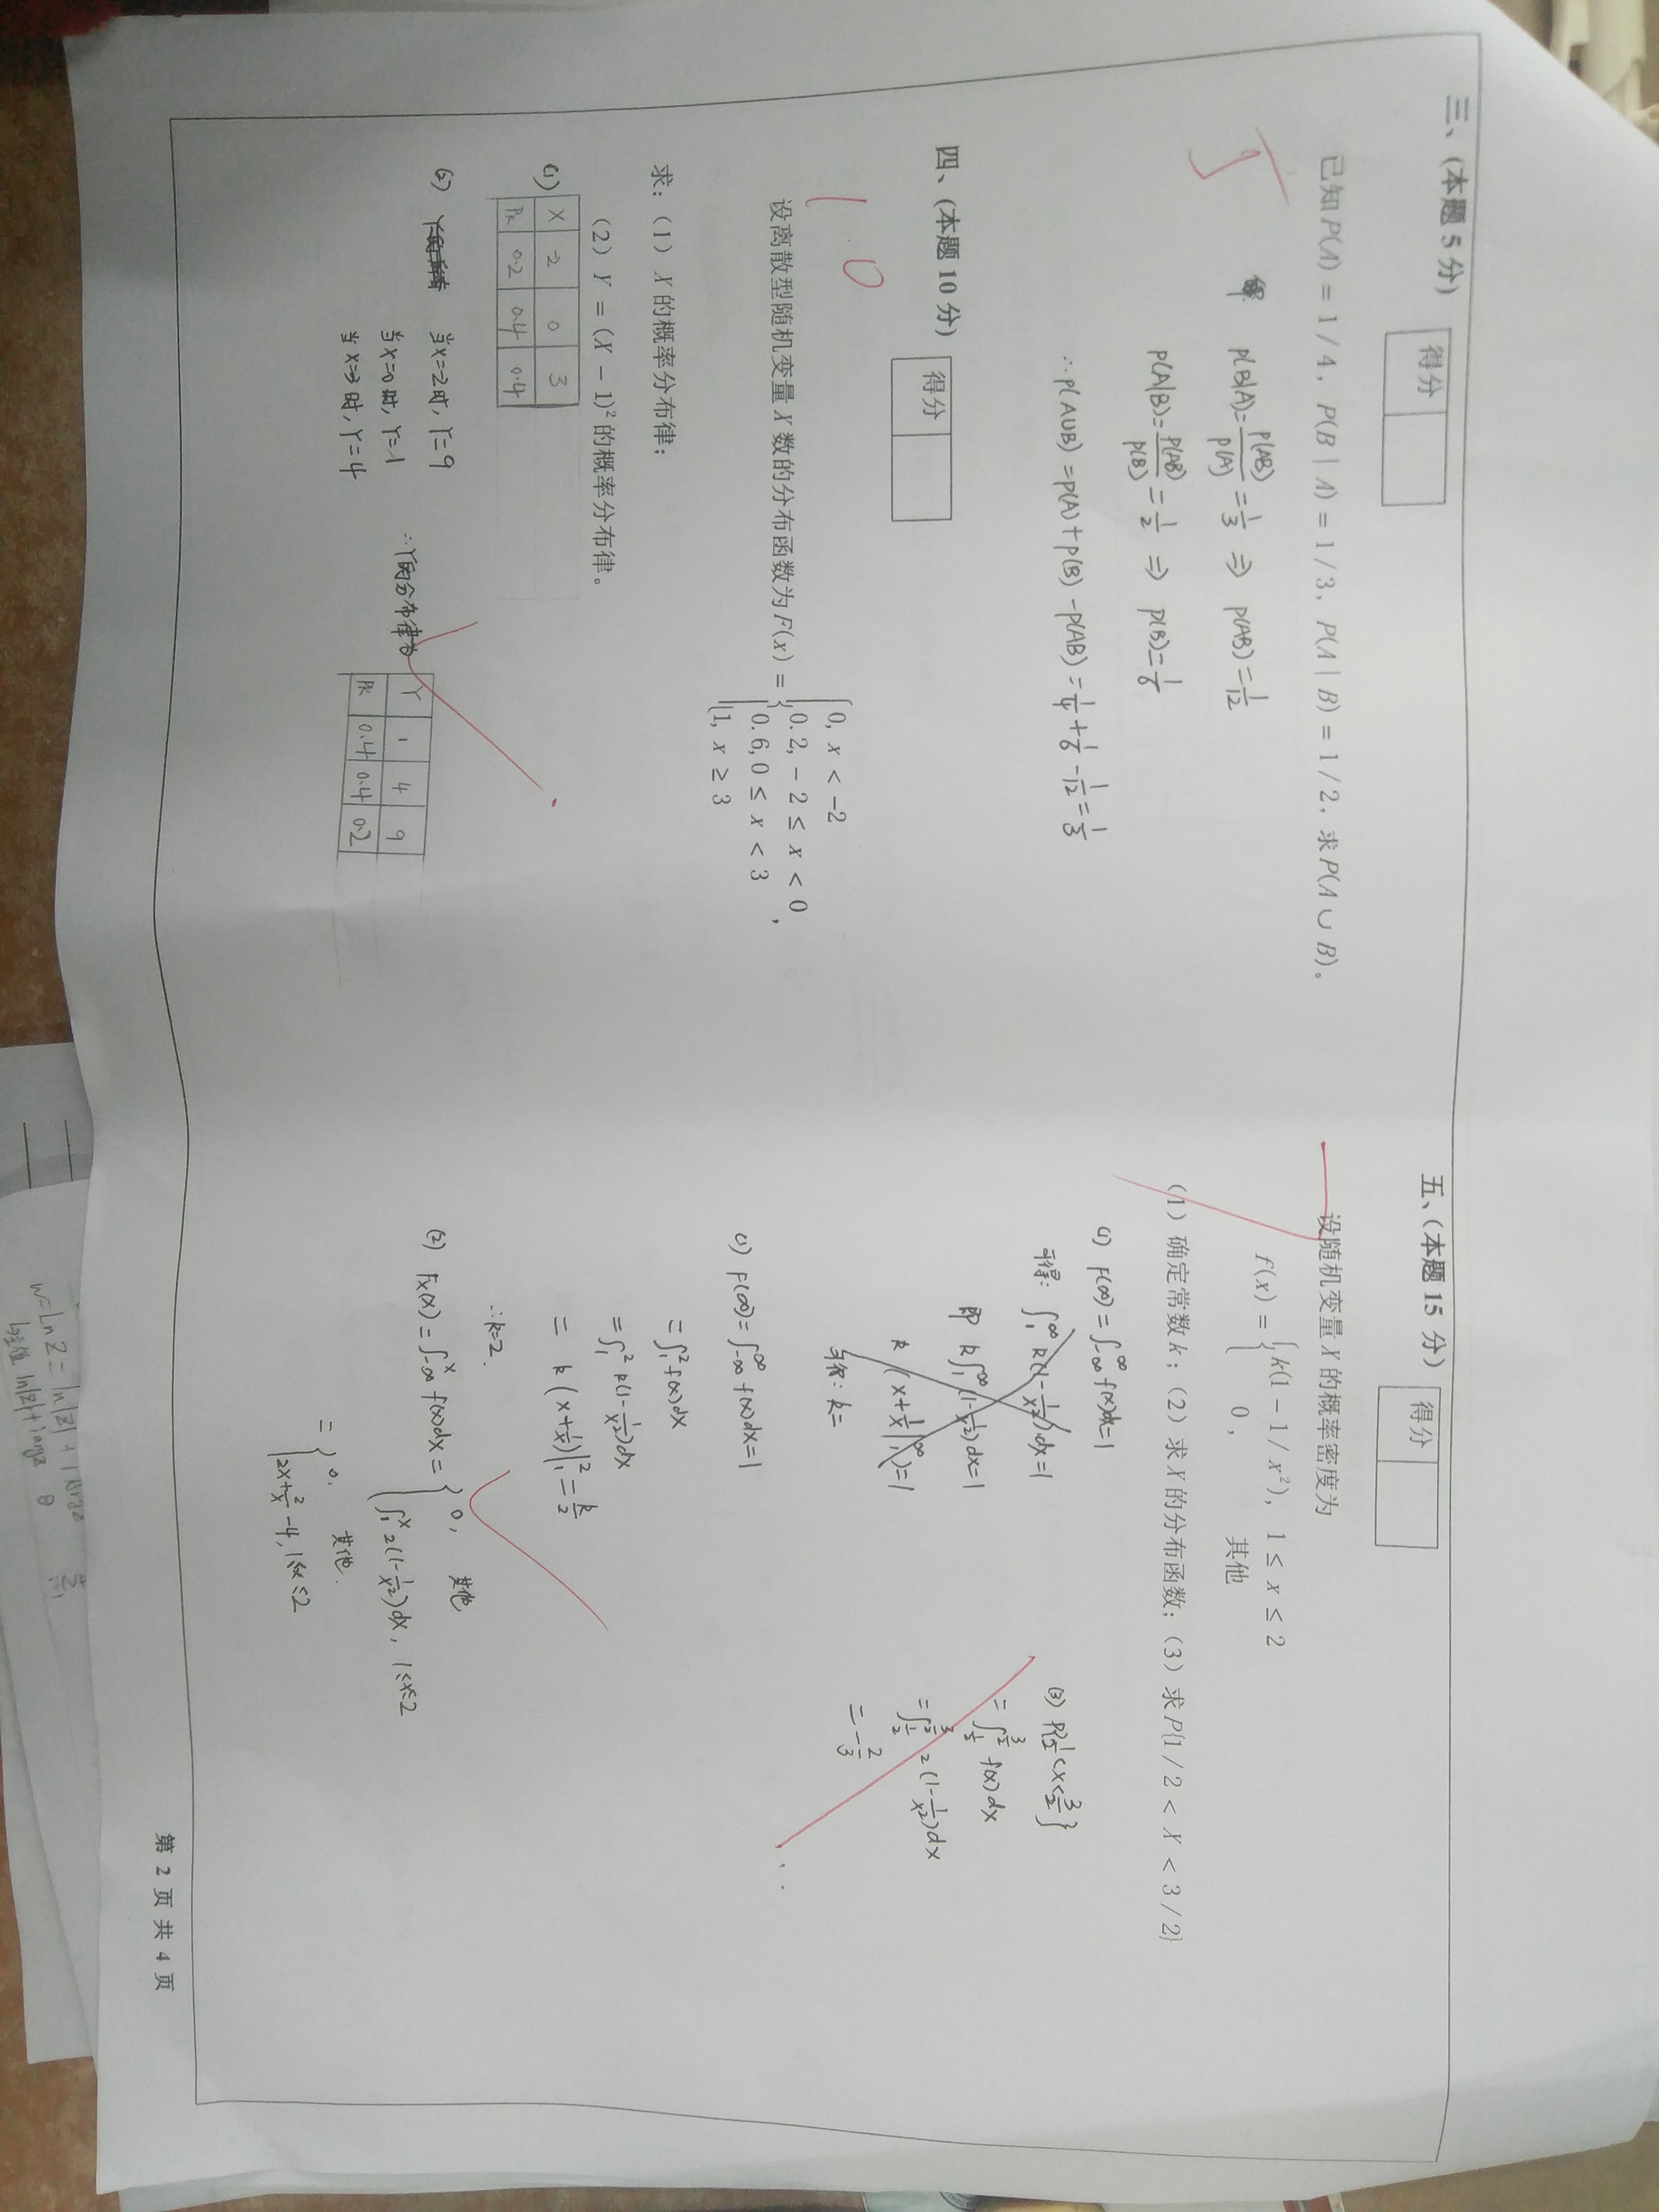 三、(本题 5 分)
得分
已知 P(A) = 1 / 4, P(B | A) = 1 / 3, P(A | B) = 1 / 2, 求 P(A ∪ B)。
5
P(B|A)=P(AB)/P(A)=1/3 ⇒ P(AB)=1/12
P(A|B)=P(AB)/P(B)=1/2 ⇒ P(B)=1/6
∴P(A∪B)=P(A)+P(B)-P(AB)=1/4+1/6-1/12=1/3
四、(本题 10 分)
得分
10
设离散型随机变量 X 数的分布函数为 F(x) = { 0, x < -2
0.2, - 2 ≤ x < 0 ,
0.6, 0 ≤ x < 3
1, x ≥ 3
求:(1) X 的概率分布律;
(2) Y = (X - 1)² 的概率分布律。
(1) X -2 0 3
Pk 0.2 0.4 0.4
(2) 当X=-2时, Y=9
当X=0时, Y=1
当X=3时, Y=4
∴Y的分布律为
Y 1 4 9
Pk 0.4 0.4 0.2
五、(本题 15 分)
得分
7
设随机变量 X 的概率密度为
f(x) = { k(1 - 1 / x²), 1 ≤ x ≤ 2
0, 其他
(1) 确定常数 k; (2) 求 X 的分布函数; (3) 求 P{1 / 2 < X < 3 / 2}
(1) F(∞)=∫_{-∞}^{∞} f(x)dx=1
可得: ∫_1^∞ k(1-1/x²)dx=1
即 k∫_1^∞ (1-1/x²)dx=1
k (x+1/x|_1^∞)=1
可得: k=
(1) F(∞)=∫_{-∞}^{∞} f(x)dx=1
=∫_1^2 f(x)dx
=∫_1^2 k(1-1/x²)dx
= k(x+1/x)|_1^2=k/2
∴k=2.
(2) F_X(x)=∫_{-∞}^x f(x)dx={ 0, 其他
∫_1^x 2(1-1/x²)dx, 1≤x≤2
={ 0, 其他.
2x+2/x-4, 1≤x≤2
(3) P{1/2<X<3/2}
=∫_{1/2}^{3/2} f(x)dx
=∫_{1/2}^{3/2} 2(1-1/x²)dx
=-2/3
第 2 页 共 4 页
w=Ln Z= ln|Z| + i Argz
ln|Z|+iargz θ